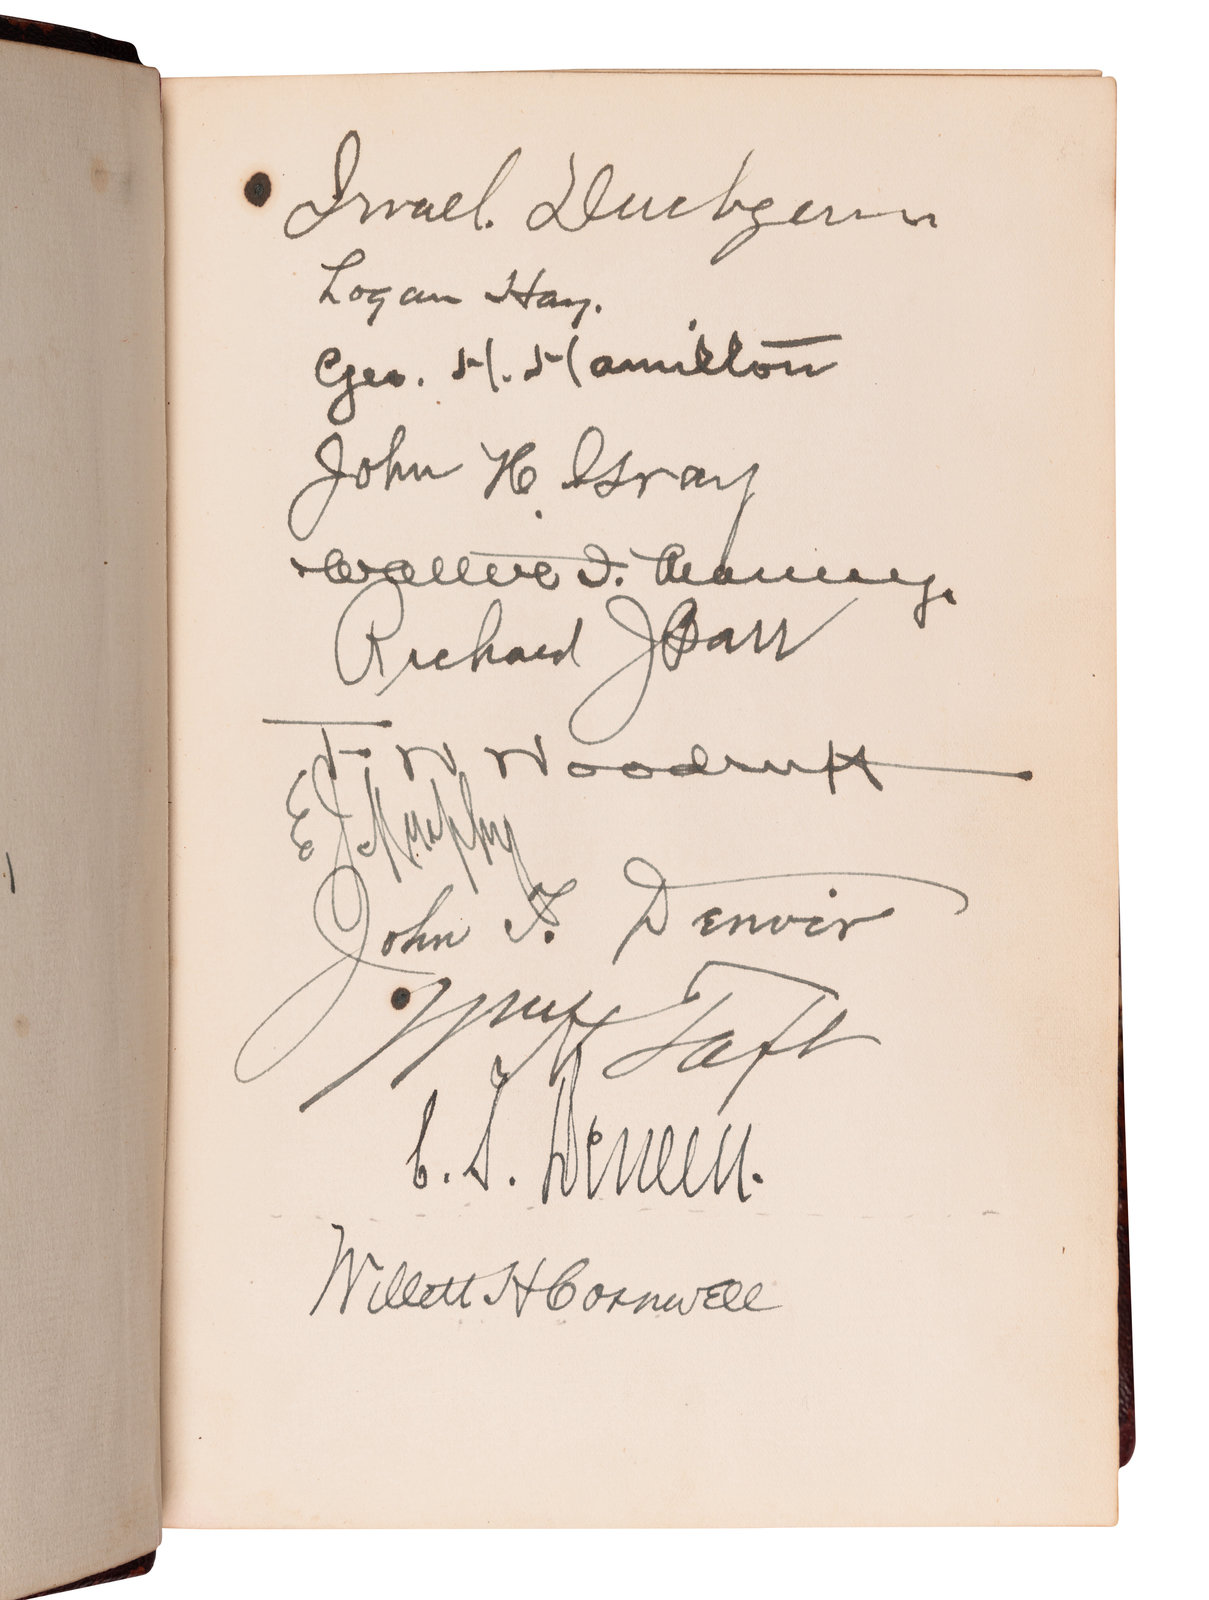 Israel Dudgeon
Logan Hay.
Geo. H. Hamilton
John H. Gray
I. Manny.
Richard J Barr
F. W Woodruff
E J Murphy
John T. Denvir
Wm H Taft
C. S. Deneen.
Willett H Cornwell